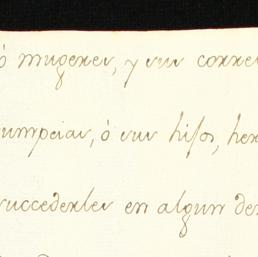 ó mugeres, y sus corres
sumpcias, ó sus hijos, her
succederles en algun de